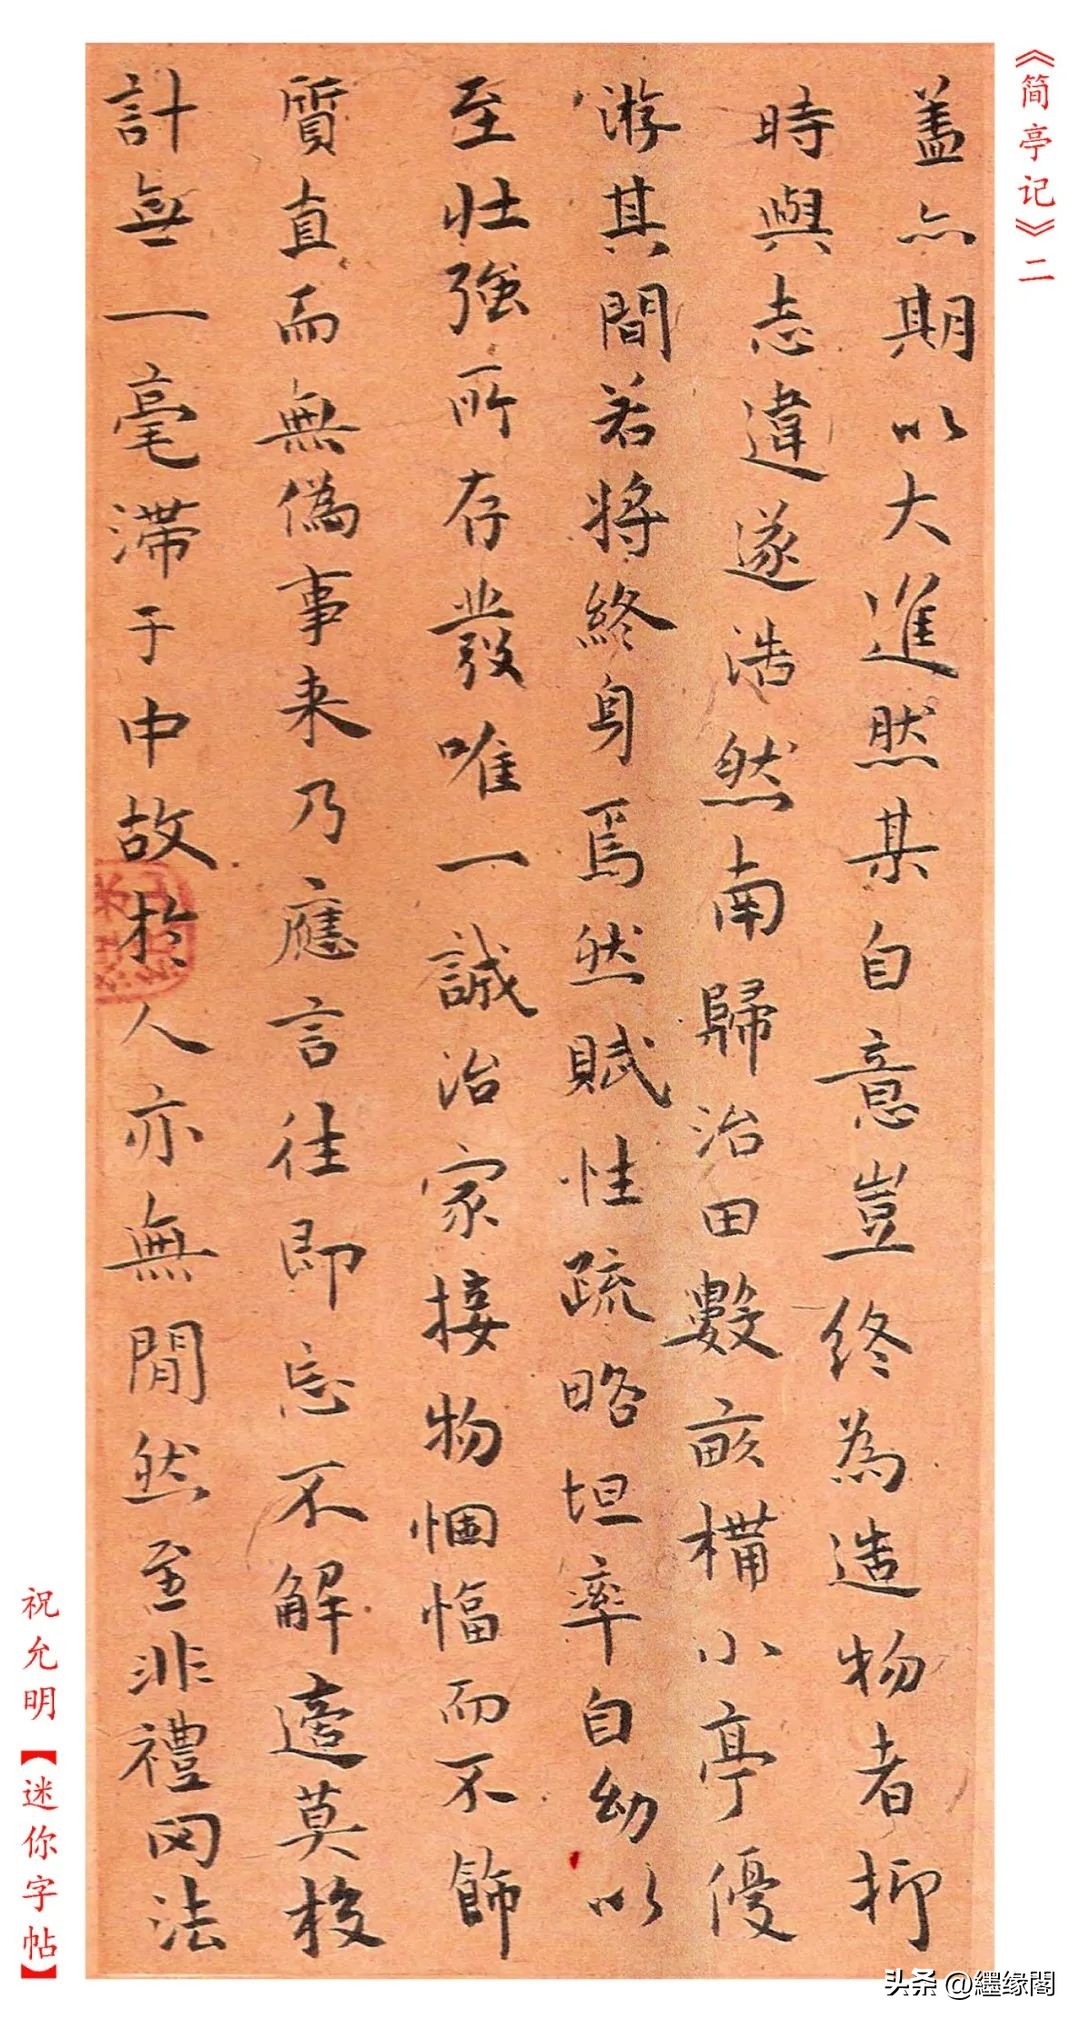 《简亭记》二
蓋亦期以大進然某自意豈終為造物者抑
時與志違遂浩然南歸治田數畝構小亭優
游其間若將終身焉然賦性疏略坦率自幼以
至壯強所存發唯一誠治家接物悃愊而不飾
質直而無偽事来乃應言往即忘不解適莫校
計無一毫滯于中故於人亦無間然至非禮罔法
祝允明【迷你字帖】
头条 @纆缘閣